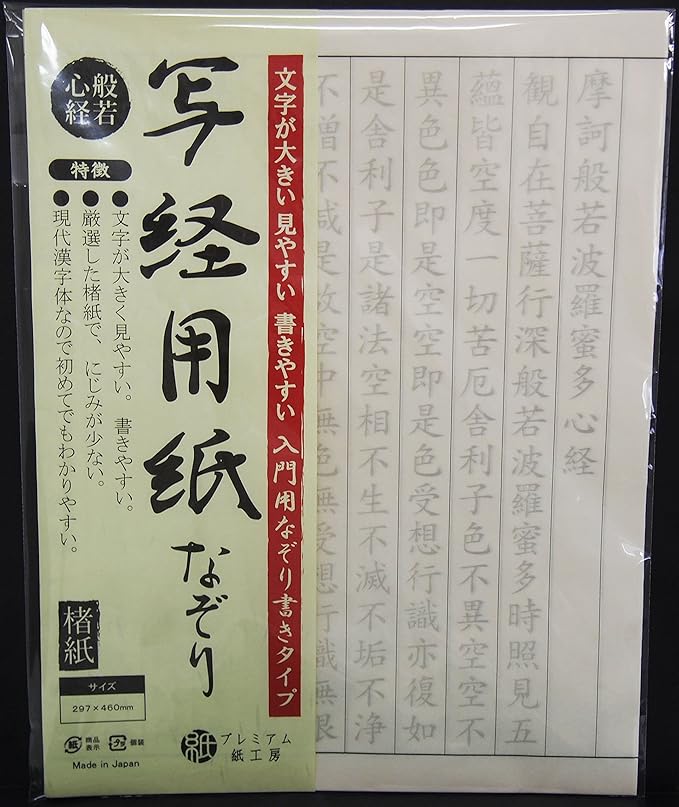 摩訶般若波羅蜜多心経
観自在菩薩行深般若波羅蜜多時照見五
蘊皆空度一切苦厄舎利子色不異空空不
異色色即是空空即是色受想行識亦復如
是舎利子是諸法空相不生不滅不垢不浄
不増不減是故空中無色無受想行識無眼
文字が大きい 見やすい 書きやすい 入門用なぞり書きタイプ
写経用紙なぞり
般若
心経
特徴
●文字が大きく見やすい。書きやすい。
●厳選した楮紙で、にじみが少ない。
●現代漢字体なので初めてでもわかりやすい。
楮紙
サイズ
297×460mm
紙 商品表示 プラ 個装
Made in Japan
紙 プレミアム
紙工房